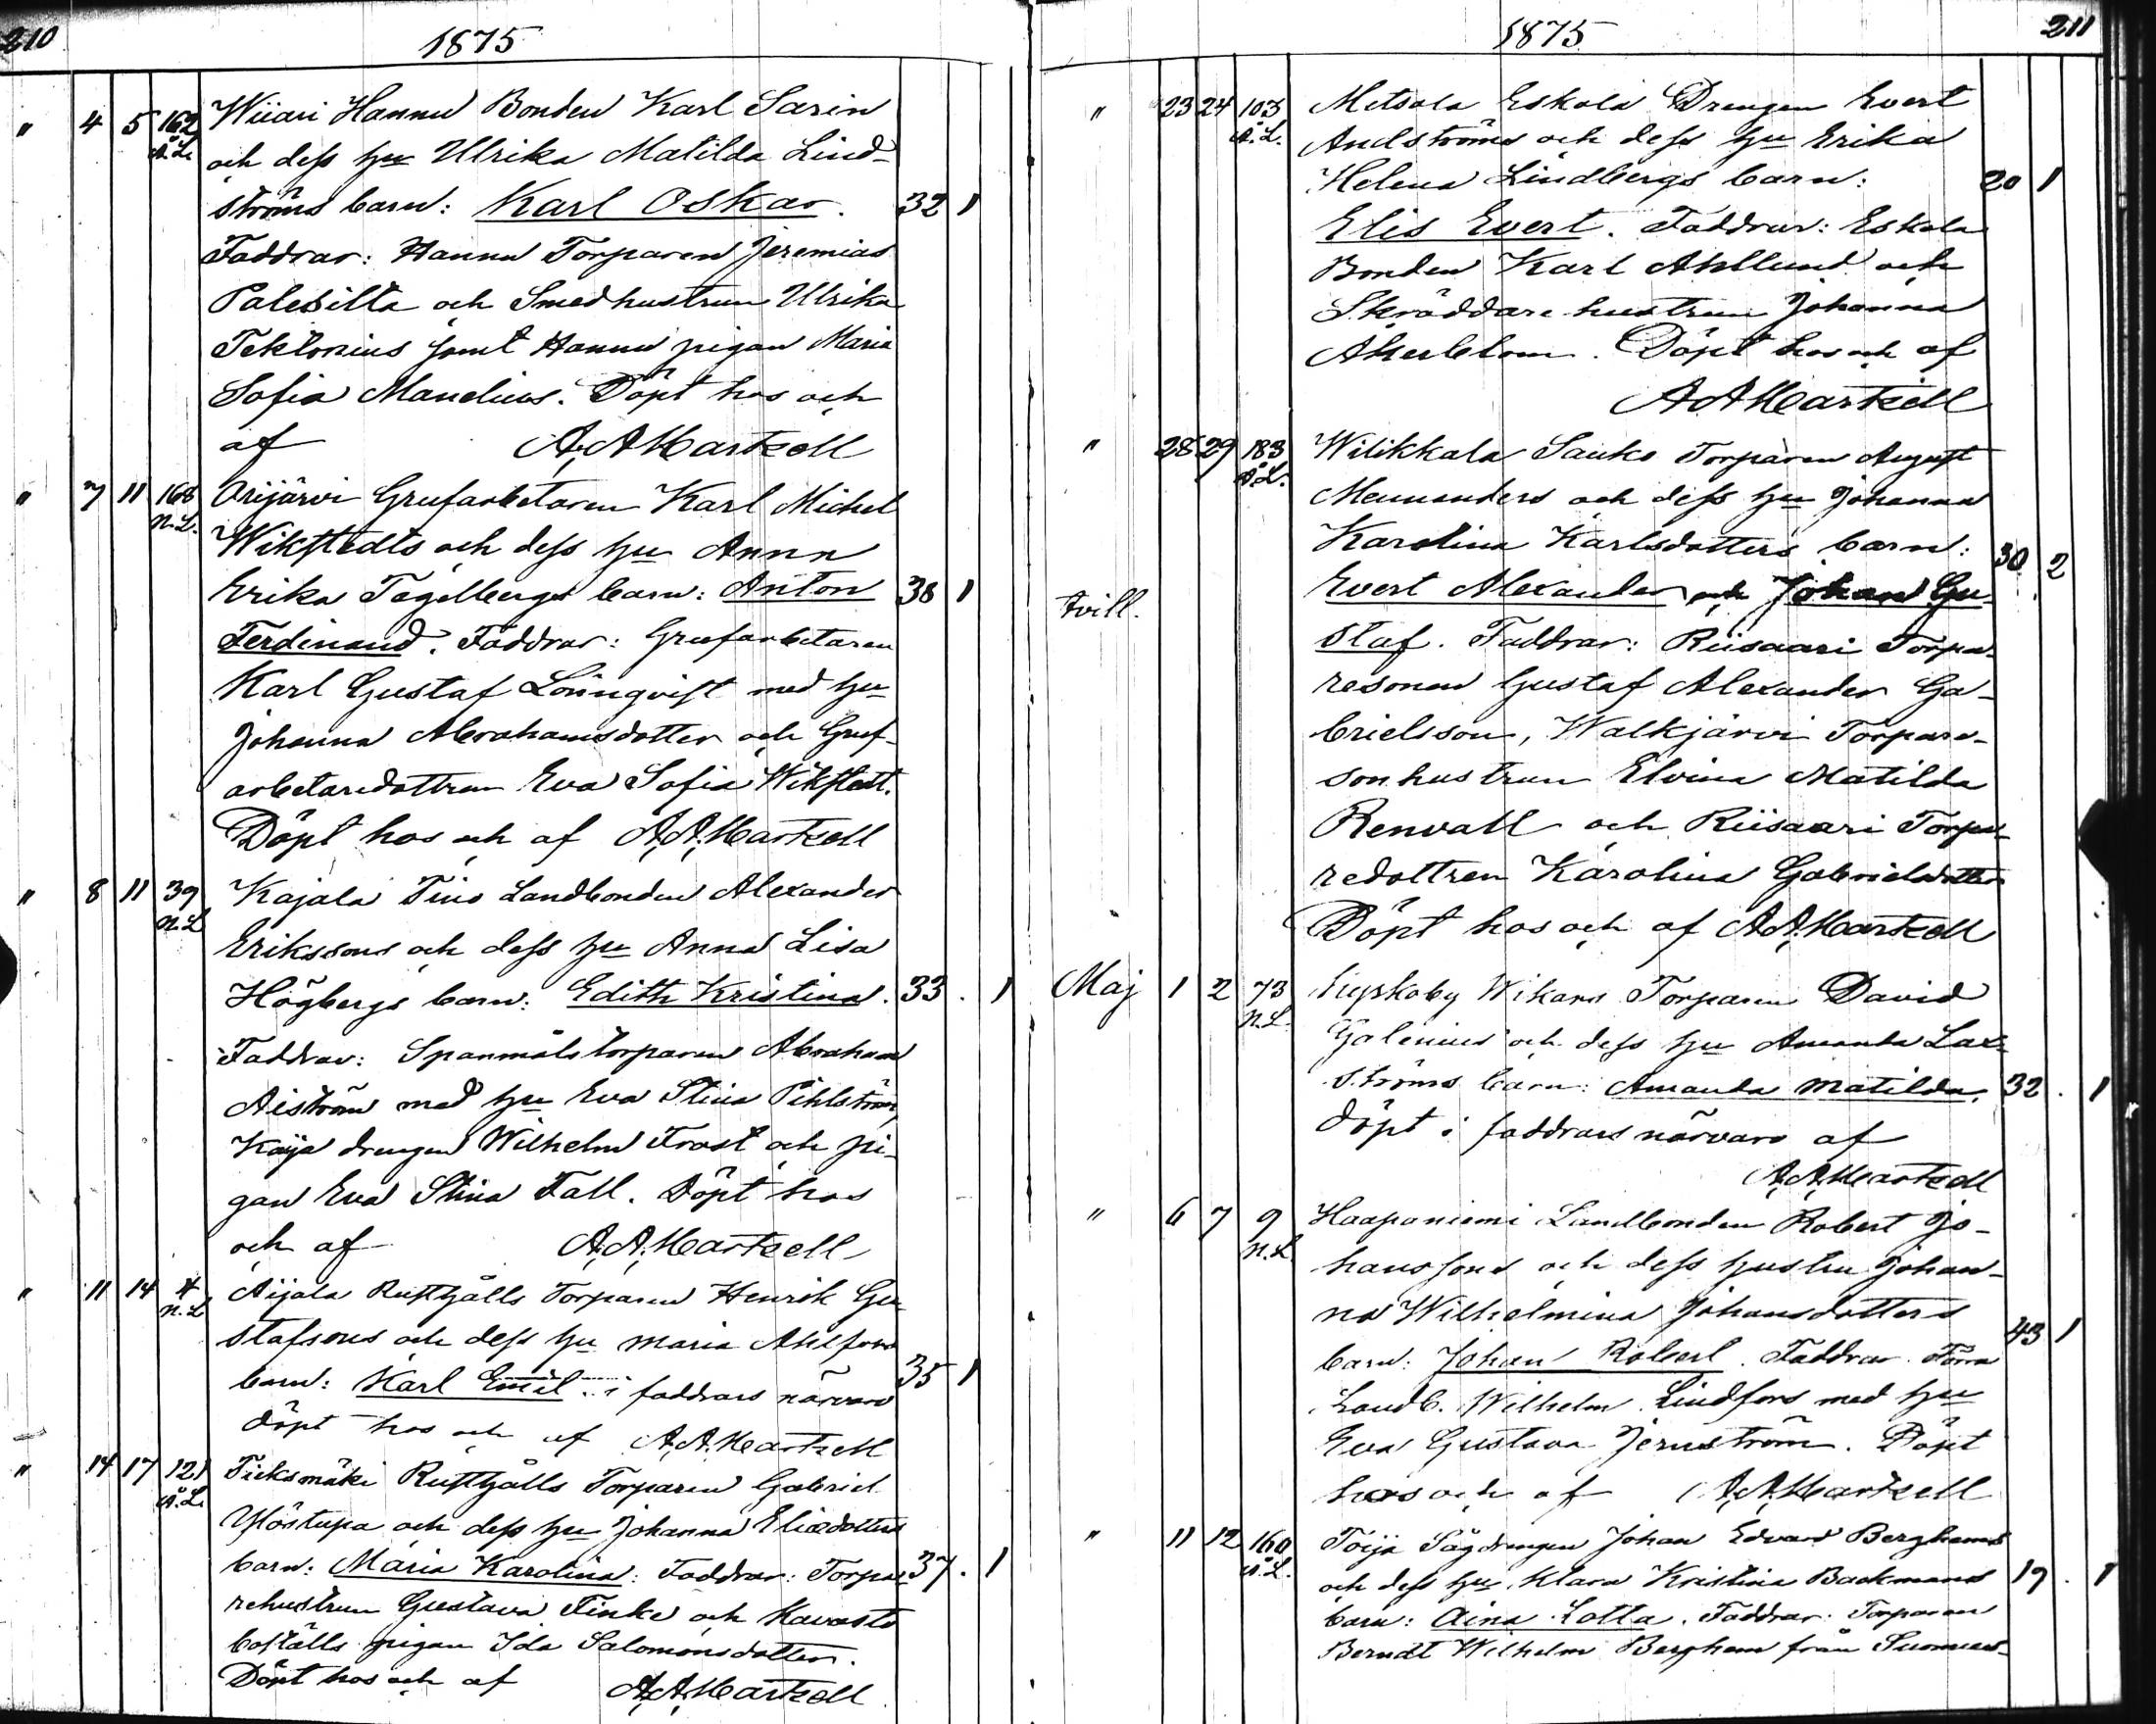 210
1875
" 4 5 162 Å.L. Wiiari Hannu Bonden Karl Sarin
och dess hu Ulrika Matilda Lind-
ströms barn: Karl Oskar. 32 1
Faddrar: Hannu Torparen Jeremias
Palesilta och Smedhustrun Ulrika
Tektonius samt Hannu pigan Maria
Sofia Mandelius. Döpt hos och
af A.A.Hartzell
" 7 11 168 N.L. Orijärvi Grufarbetaren Karl Michel
Wikstedts och dess hu Anna
Erika Tegelbergs barn: Anton 38 1
Ferdinand. Faddrar: Grufarbetaren
Karl Gustaf Lönnqvist med hu
Johanna Abrahamsdotter och Gruf-
arbetaredottren Eva Sofia Wikstedt.
Döpt hos och af A.A.Hartzell
" 8 11 39 N.L. Kajala Tins Landbonden Alexander
Erikssons och dess hu Anna Lisa
Högbergs barn: Edith Kristina. 33. 1
Faddrar: Spanmåls torparen Abraham
Aiström med hu Eva Stina Pihlström,
Kaija drengen Wilhelm Frost och pi-
gan Eva Stina Fall. Döpt hos
och af A.A.Hartzell
" 11 14 4 N.L. Aijala Rusthålls Torparen Henrik Gu-
stafsons och dess hu Maria Ahlfors
barn: Karl Emil. i faddrars närvaro 35 1
döpt hos och af A.A.Hartzell
" 14 17 121 Å.L. Tieksmäki Rusthålls Torparen Gabriel
Yöstupa och dess hu Johanna Eliædotters
barn: Maria Karolina: Faddrar: Torpa- 37. 1
rehustrun Gustava Finke och Kavasto
boställs pigan Ida Salomonsdotter.
Döpt hos och af A.A.Hartzell
1875
211
" 23 24 103 Å.L. Metsola Eskola Drengen Evert
Andströms och dess hu Erika
Helena Lindbergs barn: 20 1
Elis Evert. Faddrar: Eskola
Bonden Karl Ahllund och
Skräddare hustrun Johanna
Åkerblom. Döpt hos och af
A.A.Hartzell
" 28 29 183 Å.L. Wilikkala Sauko Torparen August
Mennanders och dess hu Johanna
Karolina Karlsdotters barn: 30. 2
tvill. Evert Alexander och Johan Gu-
staf. Faddrar: Riisaari Torpa-
resonen Gustaf Alexander Ga-
brielsson, Walkjärvi Torpare-
sonhustrun Elvina Matilda
Renvall och Riisaari Torpa-
redottren Karolina Gabrielsdotter
Döpt hos och af A.A.Hartzell
Maj 1 2 73 N.L. Wikars Torparen David
Galenius och dess hu Amanda Lax-
ströms barn: Amanda Matilda. 32. 1
döpt i faddrars närvaro af
A.A.Hartzell
" 6 7 9 N.L. Haapaniemi Landbonden Robert Jo-
hanssons och dess hustru Johan-
na Wilhelmina Johansdotters 43 1
barn: Johan Robert. Faddrar. Förra
Landb. Wilhelm Lindfors med hu
Eva Gustava Jernström. Döpt
hos och af A.A.Hartzell
" 11 12 160 Å.L. Toija Sågdrengen Johan Edvard Berghems
och dess hu Klara Kristina Backmans 19. 1
barn: Aina Lotta. Faddrar: Torparen
Berndt Wilhelm Berghem från Suomus-